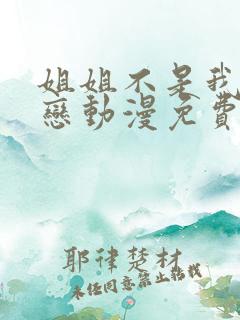 姐姐不是我
戀動漫免費
耶律楚材
未经同意禁止转载